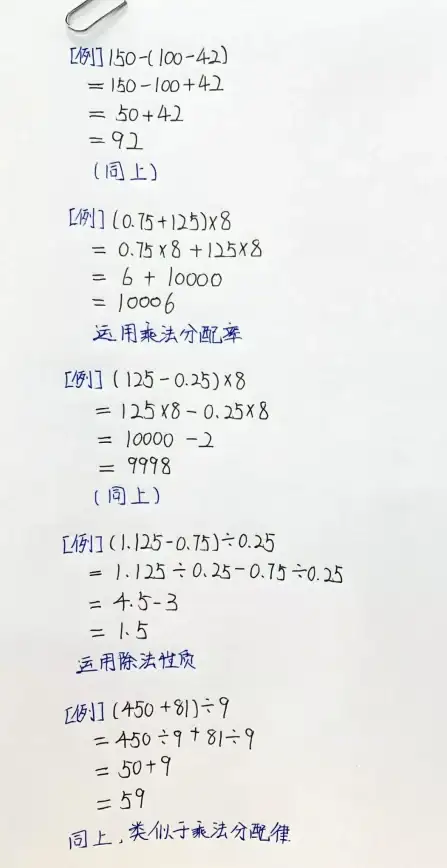 [例] 150-(100-42)
= 150-100+42
= 50+42
= 92
(同上)
[例] (0.75+125)×8
= 0.75×8+125×8
= 6+10000
= 10006
运用乘法分配率
[例] (125-0.25)×8
= 125×8-0.25×8
= 10000-2
= 9998
(同上)
[例] (1.125-0.75)÷0.25
= 1.125÷0.25-0.75÷0.25
= 4.5-3
= 1.5
运用除法性质
[例] (450+81)÷9
= 450÷9+81÷9
= 50+9
= 59
同上,类似于乘法分配律